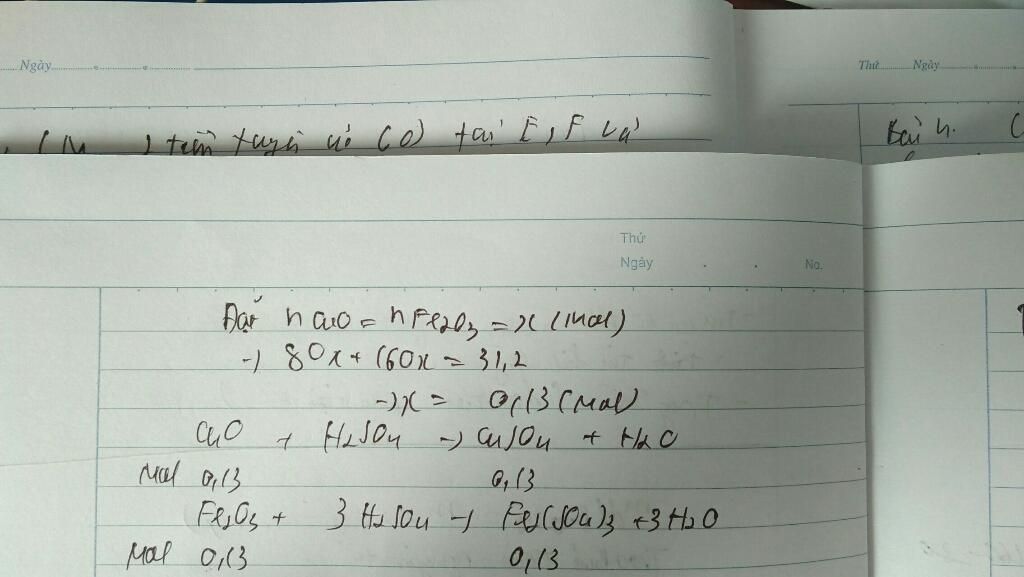 Ngày
Thứ Ngày
tại E, F và
Bài 4.
Thứ
Ngày
No.
Đặt nCuO = nFe2O3 = x (mol)
→ 80x + 160x = 31,2
→ x = 0,13 (mol)
CuO + H2SO4 → CuSO4 + H2O
Mol 0,13 0,13
Fe2O3 + 3 H2SO4 → Fe2(SO4)3 + 3 H2O
Mol 0,13 0,13